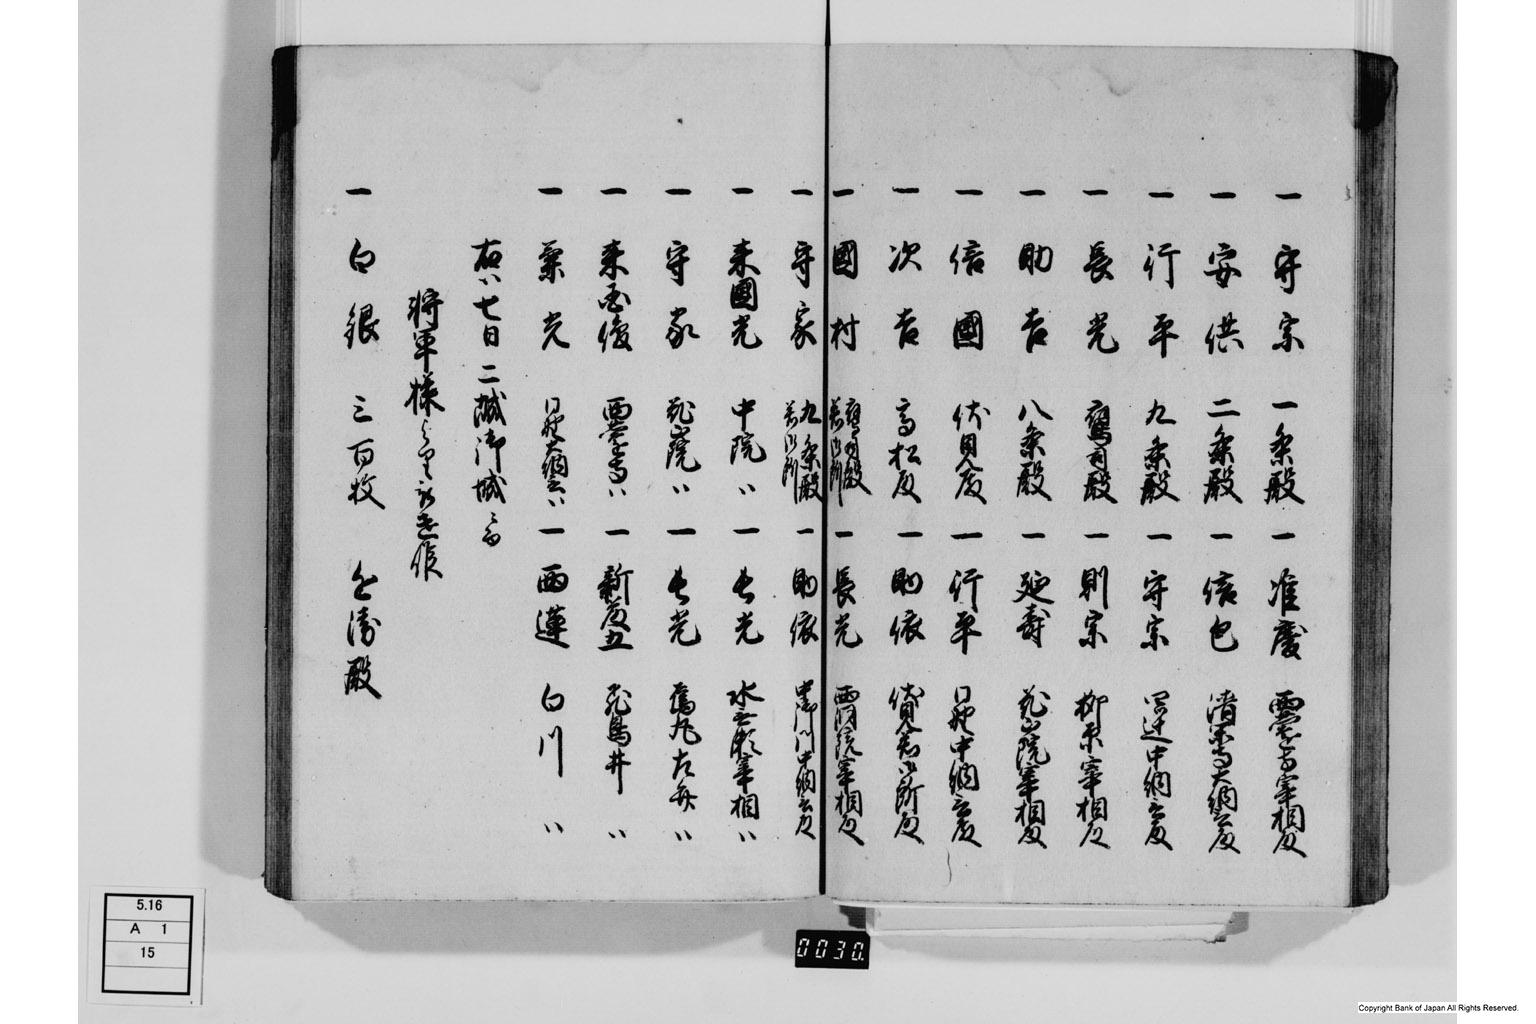 一 守宗 一条殿 一 准慶 西園寺宰相殿
一 安供 二条殿 一 信包 清閑寺大納言殿
一 行平 九条殿 一 守宗 四辻中納言殿
一 長光 鷹司殿 一 則宗 柳原宰相殿
一 助吉 八条殿 一 延寿 花山院宰相殿
一 信國 伏見殿 一 行平 日野中納言殿
一 次吉 高松殿 一 助依 伏見若御所殿
一 國村 鷹司殿若御所 一 長光 西洞院宰相殿
一 守家 九条殿若御所 一 助依 中御門中納言殿
一 来國光 中院〃 一 長光 水無瀬宰相〃
一 守家 花山院〃 一 長光 烏丸左弁〃
一 来 西園寺〃 一 新藤五 飛鳥井〃
一 兼光 日野大納言〃 一 西蓮 白川〃
右ハ七日二城御城ニ而
将軍様より被進候
一 白銀 三百枚 殿
5.16
A 1
15
0030.
Copyright Bank of Japan All Rights Reserved.